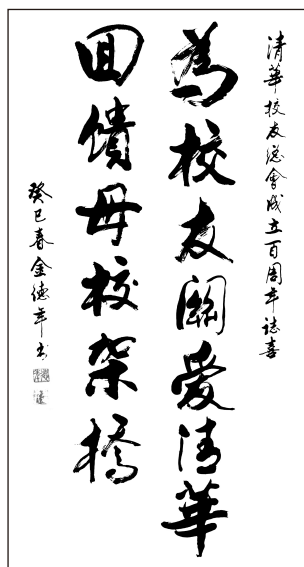 清華校友總會成立百周年誌喜
為校友關愛清華
回饋母校架橋
癸巳春金德年书